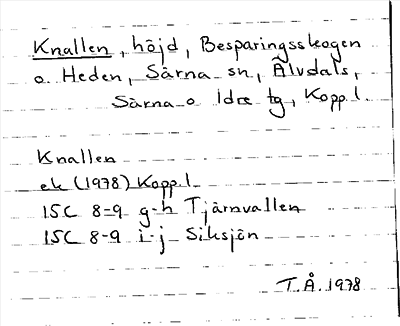 Knallen, höjd, Besparingsskogen
o. Heden, Särna sn, Älvdals,
Särna o Idre tg, Kopp.l.
Knallen
ek (1978) Kopp.l
15C 8-9 g-h Tjärnvallen
15C 8-9 i-j Siksjön
T.Å. 1978